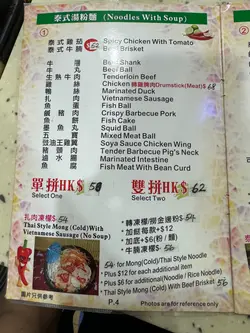 泰式湯粉麵 (Noodles With Soup)
①
泰式雞茄 Spicy Chicken With Tomato
泰式牛腩 Beef Brisket
Beef Shank
牛丸 Beef Ball
生熟牛肉 Tenderloin Beef
雞絲 Chicken Drumstick(Meat) $68
Marinated Duck
扎肉 Vietnamese Sausage
魚蛋 Fish Ball
Crispy Barbecue Pork
魚片 Fish Cake
墨魚丸 Squid Ball
五寶 Mixed Meat Ball
豉油王雞翼 Soya Sauce Chicken Wing
豬頸肉 Tender Barbecue Pig's Neck
鹵水腸 Marinated Intestine
魚腐 Fish Meat With Bean Curd
單拼HK$ 50
Select One
雙拼HK$ 62
Select Two
扎肉凍檬 $54
Thai Style Mong (Cold) With
Vietnamese Sausage (No Soup)
轉凍檬/撈金邊粉 $54
加餸每款+$12
加底+$6(粉 / 麵)
牛腩凍檬 $56
$54 for Mong(Cold)/Thai Style Noodle
Plus $12 for each additional item
Plus $6 for additional(Noodle / Rice Noodle)
Thai Style Mong (Cold) With Beef Brisket $56
圖片只供參考
P.4
Photos are for reference only